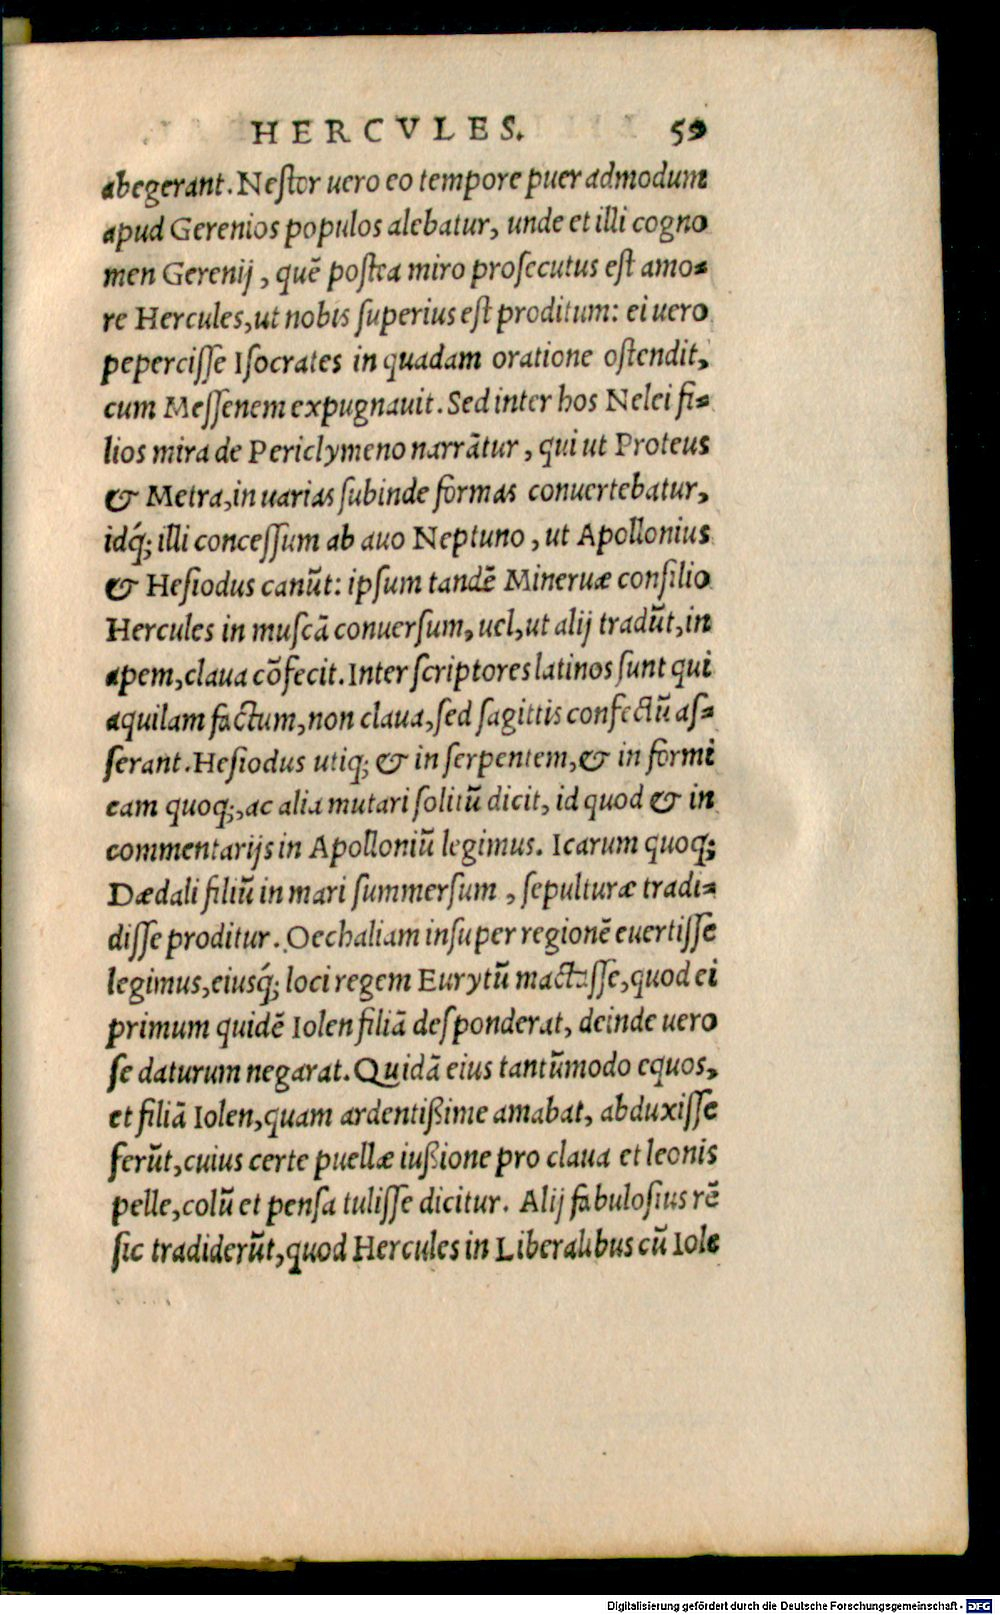 HERCVLES. 59
abegerant. Neſtor uero eo tempore puer admodum
apud Gerenios populos alebatur, unde et illi cogno
men Gerenij, quē poſtea miro proſecutus eſt amo⸗
re Hercules, ut nobis ſuperius eſt proditum: ei uero
peperciſſe Iſocrates in quadam oratione oſtendit,
cum Meſſenem expugnauit. Sed inter hos Nelei fi⸗
lios mira de Periclymeno narrātur, qui ut Proteus
& Metra, in uarias ſubinde formas conuertebatur,
idq́; illi conceſſum ab auo Neptuno, ut Apollonius
& Heſiodus canūt: ipſum tandē Mineruæ conſilio
Hercules in muſcā conuerſum, uel, ut alij tradūt, in
apem, claua cōfecit. Inter ſcriptores latinos ſunt qui
aquilam factum, non claua, ſed ſagittis confectū aſ⸗
ſerant. Heſiodus utiq; & in ſerpentem, & in formi
cam quoq;, ac alia mutari ſolitū dicit, id quod & in
commentarijs in Apolloniū legimus. Icarum quoq;
Dædali filiū in mari ſummerſum, ſepulturæ tradi⸗
diſſe proditur. Oechaliam inſuper regionē euertiſſe
legimus, eiusq́; loci regem Eurytū mactaſſe, quod ei
primum quidē Iolen filiā deſponderat, deinde uero
ſe daturum negarat. Quidā eius tantūmodo equos,
et filiā Iolen, quam ardentißime amabat, abduxiſſe
ferūt, cuius certe puellæ iußione pro claua et leonis
pelle, colū et penſa tuliſſe dicitur. Alij fabuloſius rē
ſic tradiderūt, quod Hercules in Liberalibus cū Iole
Digitalisierung gefördert durch die Deutsche Forschungsgemeinschaft - DFG